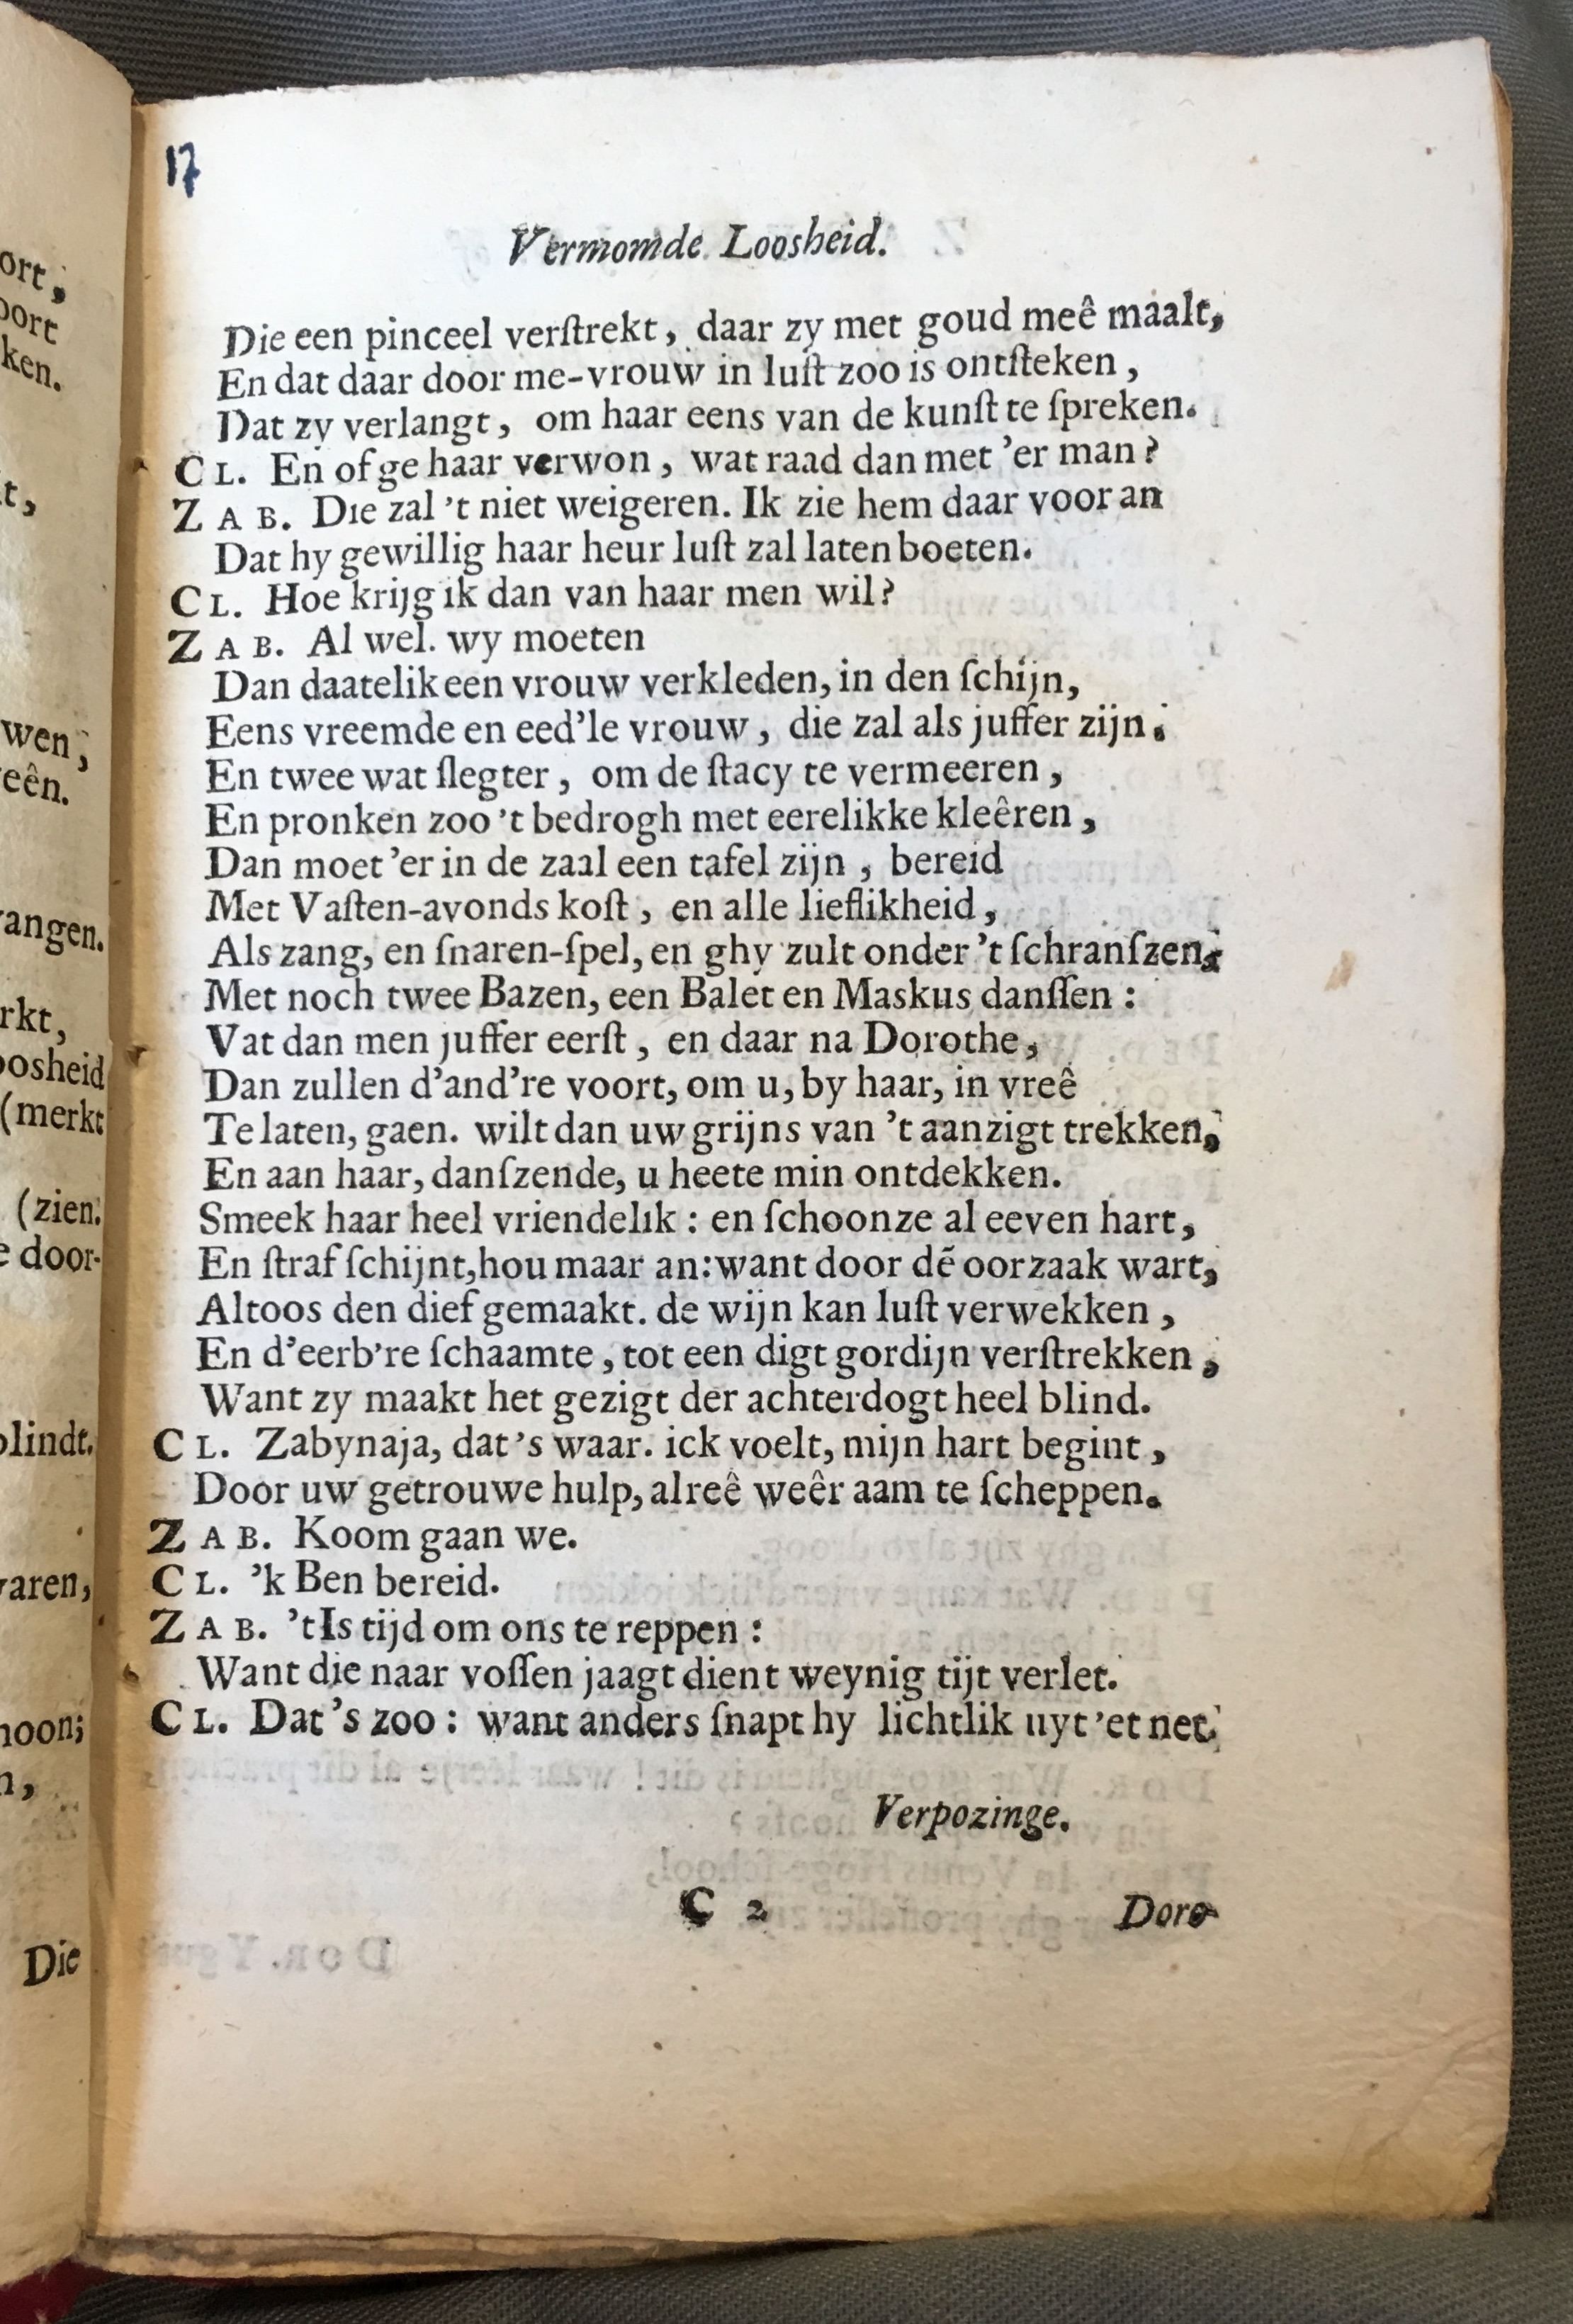 17
Vermomde Loosheid.
Die een pinceel verſtrekt, daar zy met goud meê maalt,
En dat daar door me-vrouw in luſt zoo is ontſteken,
Dat zy verlangt, om haar eens van de kunſt te ſpreken.
CL. En of ge haar verwon, wat raad dan met 'er man?
ZAB. Die zal 't niet weigeren. Ik zie hem daar voor an
Dat hy gewillig haar heur luſt zal laten boeten.
CL. Hoe krijg ik dan van haar men wil?
ZAB. Al wel. wy moeten
Dan daatelik een vrouw verkleden, in den ſchijn,
Eens vreemde en eed'le vrouw, die zal als juffer zijn;
En twee wat ſlegter, om de ſtacy te vermeeren,
En pronken zoo 't bedrogh met eerelikke kleêren,
Dan moet 'er in de zaal een tafel zijn, bereid
Met Vaſten-avonds koſt, en alle lieflikheid,
Als zang, en ſnaren-ſpel, en ghy zult onder 't ſchranſzen,
Met noch twee Bazen, een Balet en Maskus danſſen:
Vat dan men juffer eerſt, en daar na Dorothe,
Dan zullen d'and're voort, om u, by haar, in vreê
Te laten, gaen. wilt dan uw grijns van 't aanzigt trekken,
En aan haar, danſzende, u heete min ontdekken.
Smeek haar heel vriendelik: en ſchoonze al eeven hart,
En ſtraf ſchijnt, hou maar an: want door dē oorzaak wart,
Altoos den dief gemaakt. de wijn kan luſt verwekken,
En d'eerb're ſchaamte, tot een digt gordijn verſtrekken,
Want zy maakt het gezigt der achterdogt heel blind.
CL. Zabynaja, dat's waar. ick voelt, mijn hart begint,
Door uw getrouwe hulp, alreê weêr aam te ſcheppen.
ZAB. Koom gaan we.
CL. 'k Ben bereid.
ZAB. 't Is tijd om ons te reppen:
Want die naar voſſen jaagt dient weynig tijt verlet.
CL. Dat's zoo: want anders ſnapt hy lichtlik uyt 'et net.
Verpozinge.
C 2
Doro-
ort,
oort
ken.
t,
wen,
eên.
angen.
rkt,
oosheid
(merkt
(zien.
e door-
blindt.
aren,
hoon;
n,
Die